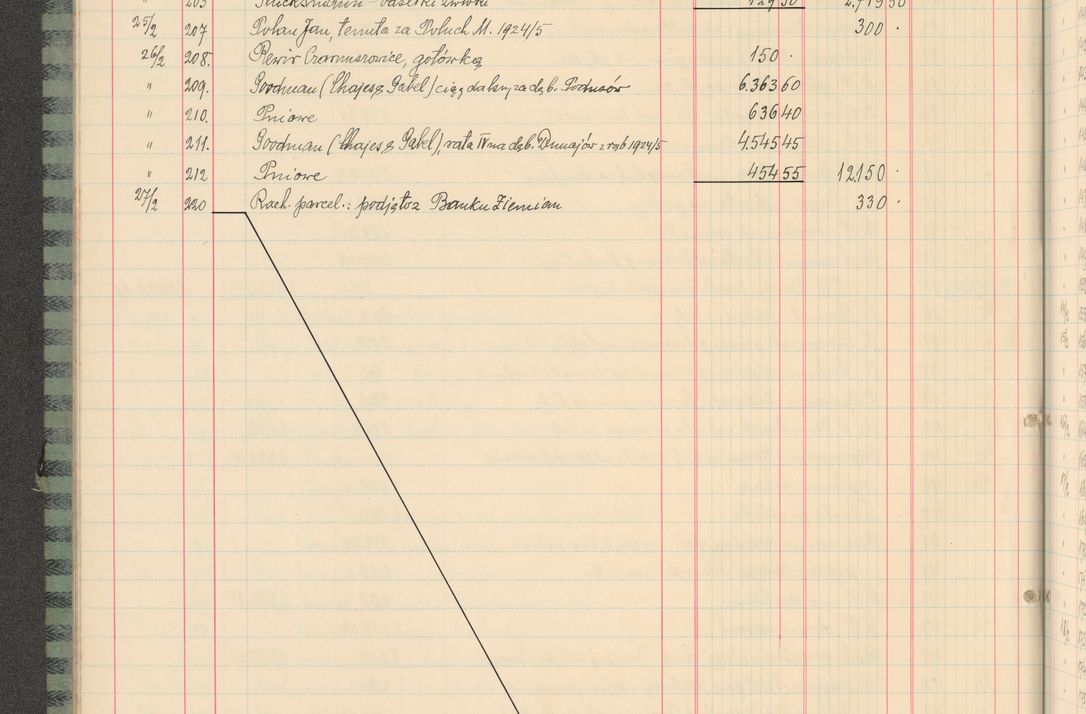 " 205 129 50 2.719 50
25/2 207 Polan Jan, tenuta za Poluch M. 1924/5 300 ·
26/2 208. Rewir Czarnuszowice, gotówką 150 ·
" 209. Goodman (Chajes & Gabel) ciąg dalszy za dęb. 6.363 60
" 210. Pniowe 636 40
" 211. Goodman (Chajes & Gabel), rata IV na dęb. Dunajów z ręb 1924/5 4.545 45
" 212 Pniowe 454 55 12.150 ·
27/2 220 Rach. parcel.: podjęto z Banku Ziemian 330 ·